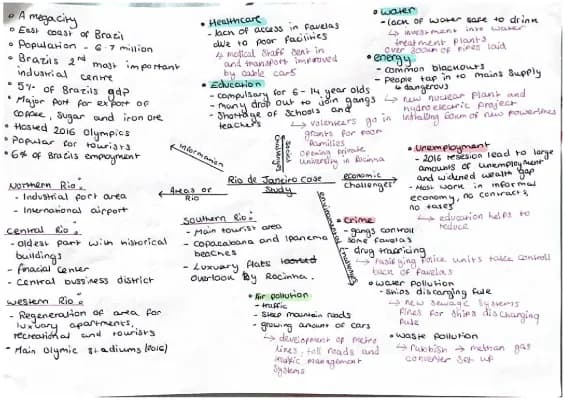 • A megacity
• East coast of Brazil
• Population - 6.7 million
• Brazils 2nd most important
industrial centre
• 5% of Brazils gdp
• Major port for export of
coffee, sugar and iron ore
• Hosted 2016 Olympics
• Popular for tourists
• 6% of Brazils employment
• Healthcare
- lack of access in favelas
due to poor facilities
↳ medical staff sent in
and transport improved
by cable cars
• Education
- compulsary for 6-14 year olds
- many drop out to join gangs
- Shortage of schools and
teachers
↳ volenteers go in
grants for poor
families
opening private
university in Rocinha
• water
- lack of water safe to drink
↳ investment into water
treatment plants
over 300km of pipes laid
• energy
- common blackouts
- People tap in to mains supply
↳ dangerous
↳ new nuclear plant and
hydroelectric project
installing 60km of new powerlines
information
Social
Challenges
Rio de Janeiro Case
Study
Areas of
Rio
economic
challenges
environmental challenges
• Unemployment
- 2015 resesion lead to large
amounts of unemployment
and widened wealth gap
- Most work in informal
economy, no contracts,
no taxes
↳ education helps to
reduce
• Crime
- gangs controll
some favelas
drug trafficing
↳ Pasifying Police units take controll
back of favelas
Northern Rio:
- Industrial port area
- International airport
Central Rio:
- oldest part with historical
buildings
- finacial center
- Central bussiness district
Western Rio:
- Regeneration of area for
luxuary apartments,
recreational and tourists
- Main Olymic stadiums (2016)
Southern Rio:
- Main tourist area
- Copacabana and Ipanema
beaches
- Luxuary flats
overlook by Rocinha.
• Air pollution
- traffic
- Steep mountain roads
- growing amount of cars
↳ development of metro
lines, toll roads and
traffic management
systems
• water pollution
- Ships discarging fule
↳ new sewage systems
fines for ships discharging
fule
• Waste pollution
↳ rubbish → methan gas
converter set up